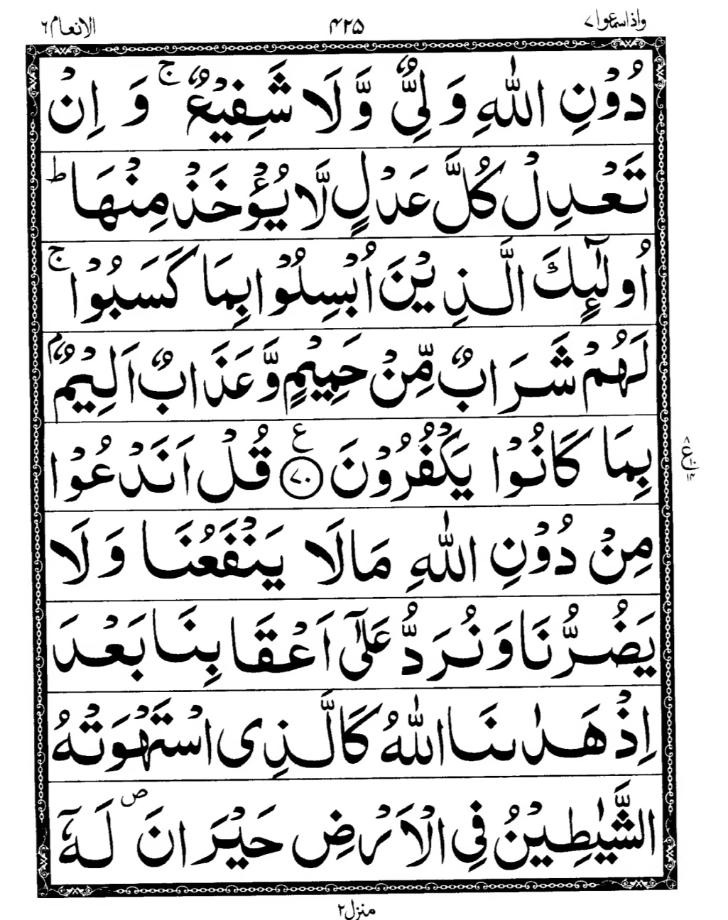 واذاسمعوا ۷ ۴۲۵ الانعام ۶
دُوْنِ اللّٰهِ وَلِیٌّ وَّلَا شَفِیْعٌ ۚ وَ اِنْ
تَعْدِلْ كُلَّ عَدْلٍ لَّا یُؤْخَذْ مِنْهَا ؕ
اُولٰٓىِٕكَ الَّذِیْنَ اُبْسِلُوْا بِمَا كَسَبُوْا ۚ
لَهُمْ شَرَابٌ مِّنْ حَمِیْمٍ وَّ عَذَابٌ اَلِیْمٌۢ
بِمَا كَانُوْا یَكْفُرُوْنَ ﴿۷۰﴾ ع قُلْ اَنَدْعُوْا
ع ۸ ۱۰ ۱۴
مِنْ دُوْنِ اللّٰهِ مَا لَا یَنْفَعُنَا وَ لَا
یَضُرُّنَا وَ نُرَدُّ عَلٰۤی اَعْقَابِنَا بَعْدَ
اِذْ هَدٰىنَا اللّٰهُ كَالَّذِی اسْتَهْوَتْهُ
الشَّیٰطِیْنُ فِی الْاَرْضِ حَیْرَانَ ۪ لَهٗۤ
منزل ۲